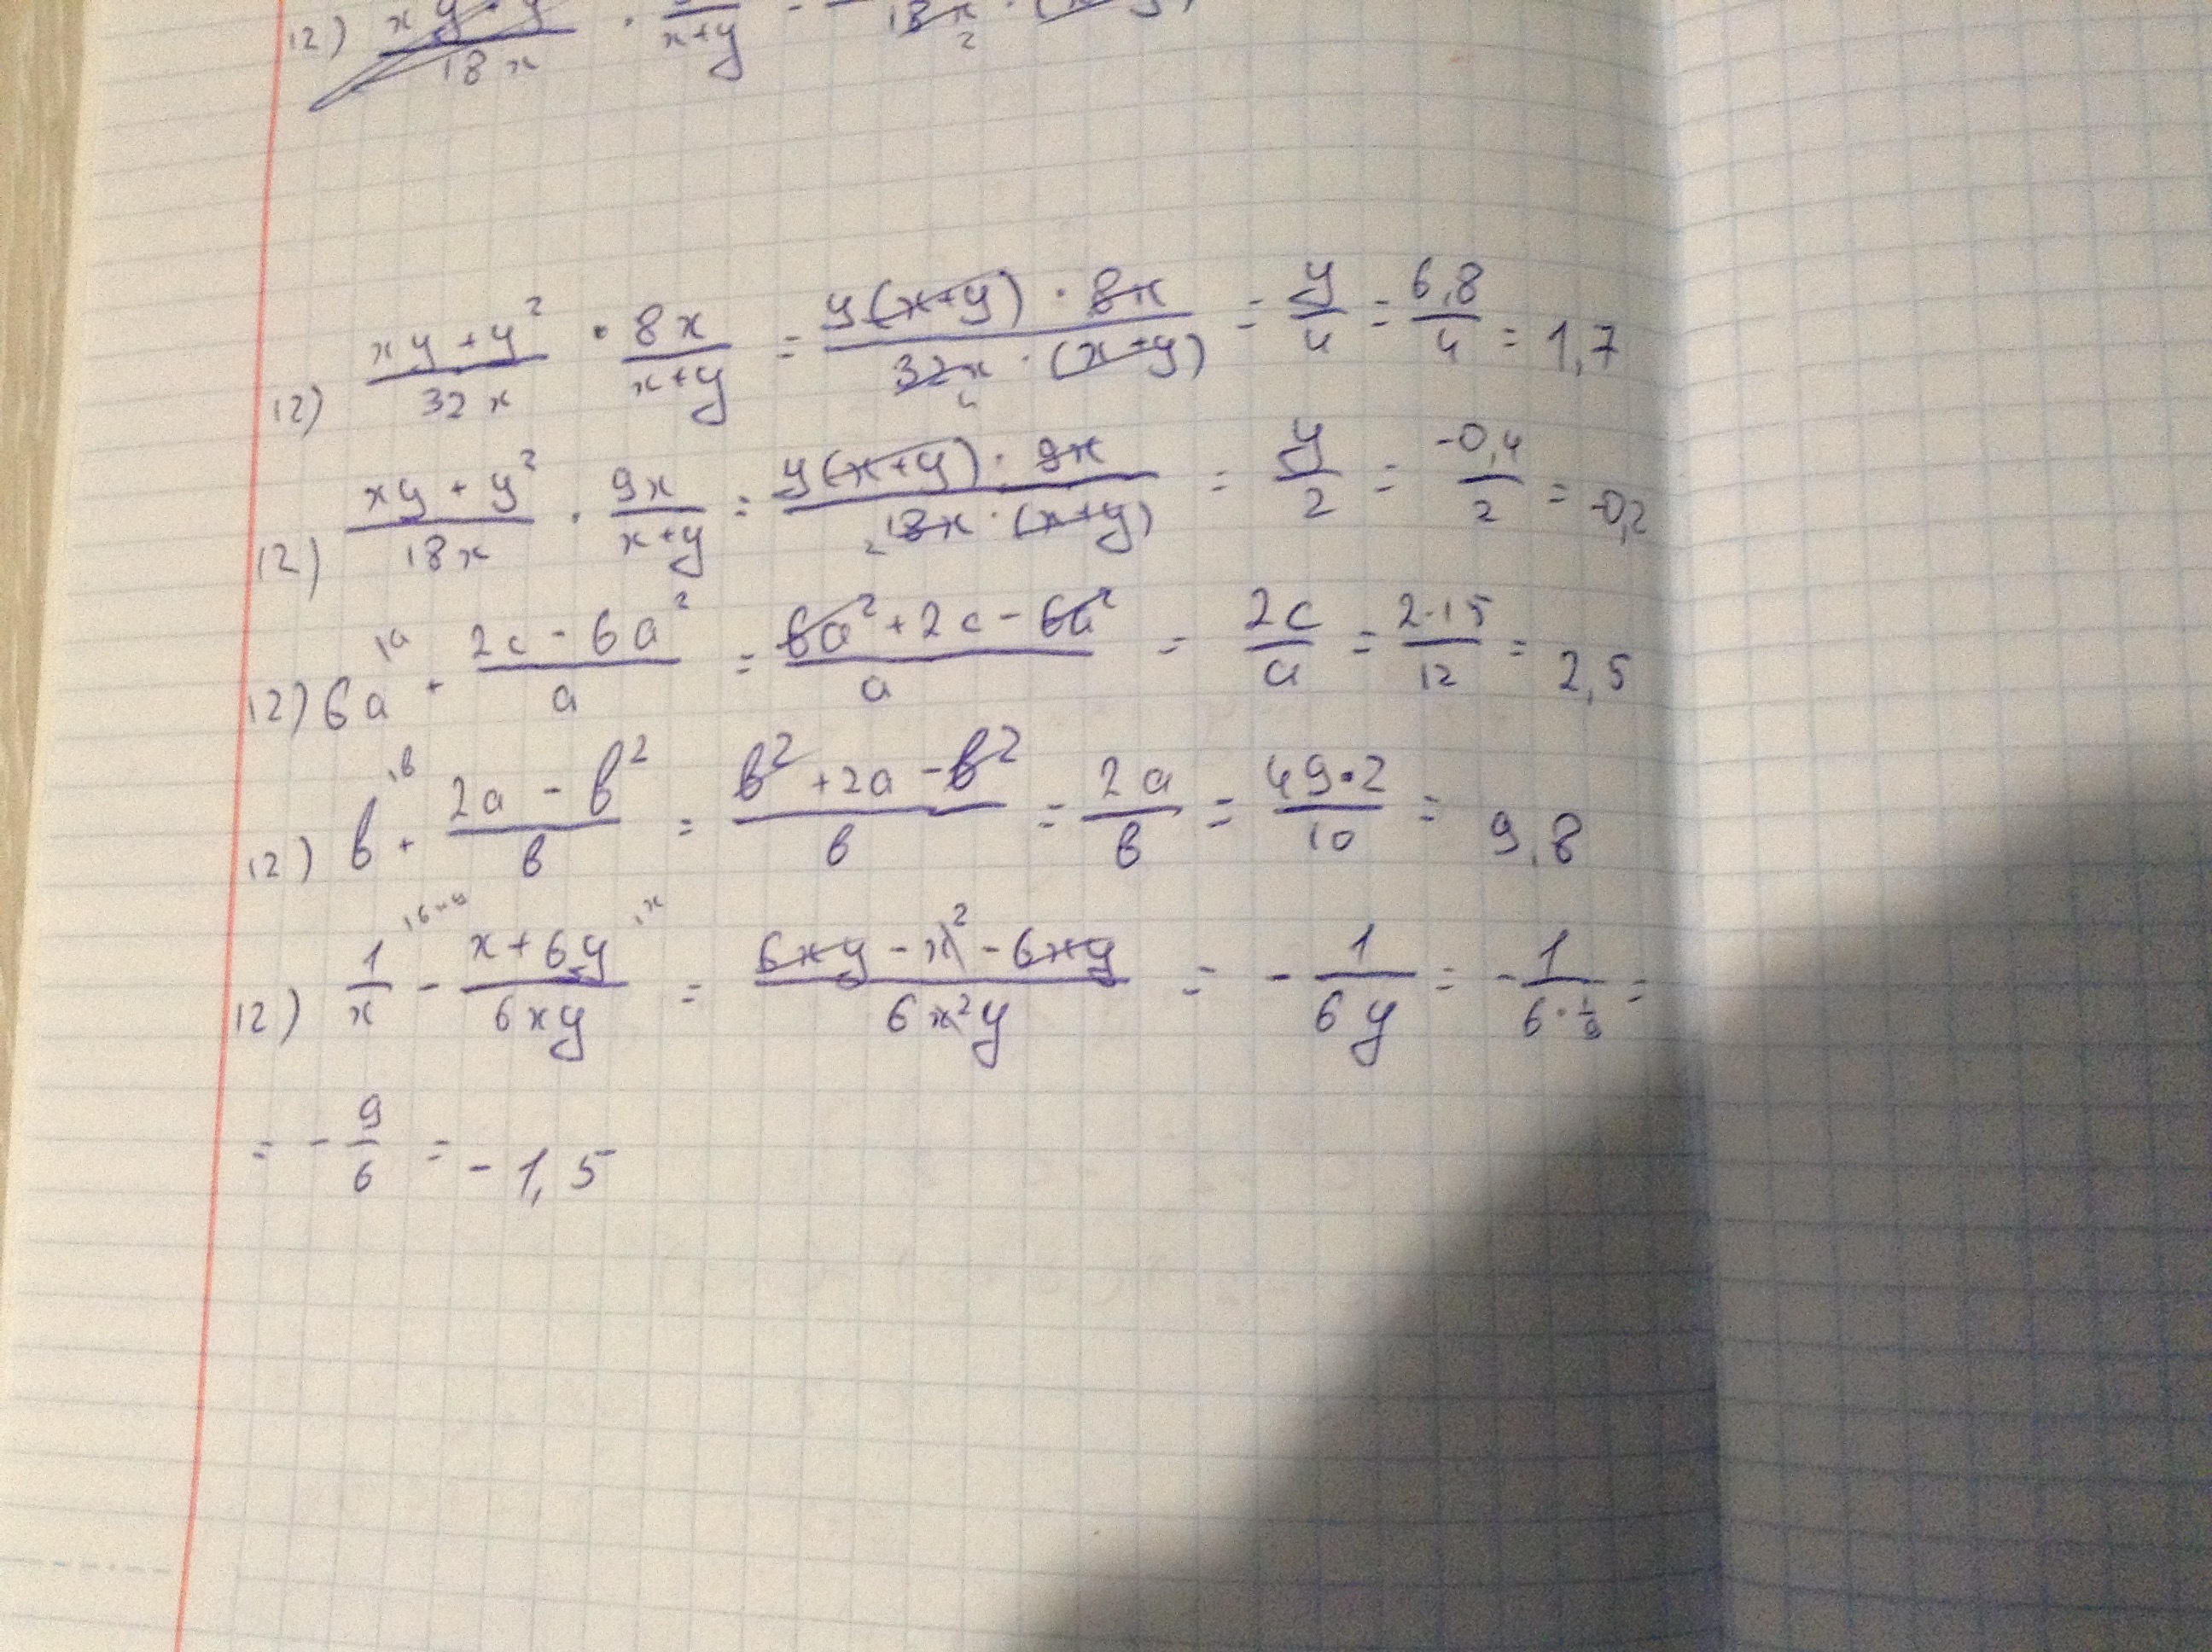 12) / 18x · / x+y = / 18x · (x+y)
2
12) (xy+y²)/(32x) · (8x)/(x+y) = (y(x+y) · 8x)/(32x · (x+y)) = y/4 = 6,8/4 = 1,7
4
12) (xy+y²)/(18x) · (9x)/(x+y) = (y(x+y) · 9x)/(18x · (x+y)) = y/2 = -0,4/2 = -0,2
2
12) 6a + (2c-6a²)/a = (6a²+2c-6a²)/a = 2c/a = 2·15/12 = 2,5
12) b + (2a-b²)/b = (b²+2a-b²)/b = 2a/b = 49·2/10 = 9,8
12) 1/x - (x+6y)/(6xy) = (6xy-x²-6xy)/(6x²y) = -1/(6y) = -1/(6·1/9) =
= -9/6 = -1,5